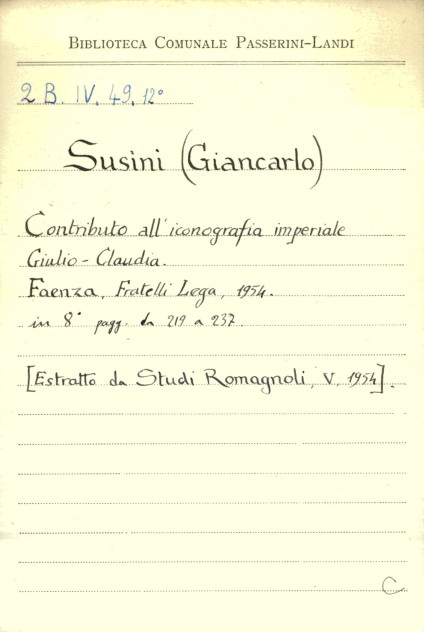 BIBLIOTECA COMUNALE PASSERINI-LANDI
2 B. IV. 49. 12°
Susini (Giancarlo)
Contributo all'iconografia imperiale
Giulio-Claudia.
Faenza, Fratelli Lega, 1954.
in 8° pagg. da 219 a 237.
[Estratto da Studi Romagnoli, V, 1954].
C